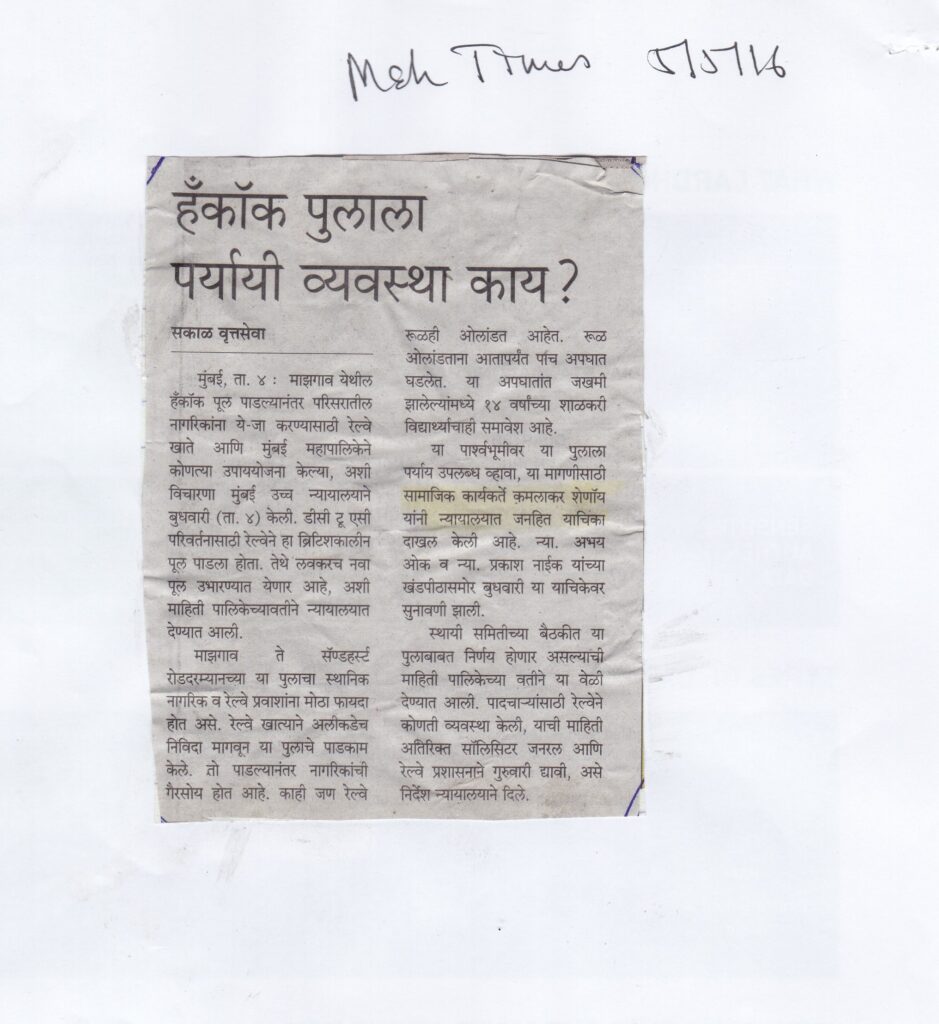 Mah Times 5/5/16
हँकॉक पुलाला
पर्यायी व्यवस्था काय?
सकाळ वृत्तसेवा
मुंबई, ता. ४ : माझगाव येथील
हँकॉक पूल पाडल्यानंतर परिसरातील
नागरिकांना ये-जा करण्यासाठी रेल्वे
खाते आणि मुंबई महापालिकेने
कोणत्या उपाययोजना केल्या, अशी
विचारणा मुंबई उच्च न्यायालयाने
बुधवारी (ता. ४) केली. डीसी टू एसी
परिवर्तनासाठी रेल्वेने हा ब्रिटिशकालीन
पूल पाडला होता. तेथे लवकरच नवा
पूल उभारण्यात येणार आहे, अशी
माहिती पालिकेच्यावतीने न्यायालयात
देण्यात आली.
माझगाव ते सॅण्डहर्स्ट
रोडदरम्यानच्या या पुलाचा स्थानिक
नागरिक व रेल्वे प्रवाशांना मोठा फायदा
होत असे. रेल्वे खात्याने अलीकडेच
निविदा मागवून या पुलाचे पाडकाम
केले. तो पाडल्यानंतर नागरिकांची
गैरसोय होत आहे. काही जण रेल्वे
रूळही ओलांडत आहेत. रूळ
ओलांडताना आतापर्यंत पांच अपघात
घडलेत. या अपघातांत जखमी
झालेल्यांमध्ये १४ वर्षांच्या शाळकरी
विद्यार्थ्याचाही समावेश आहे.
या पार्श्वभूमीवर या पुलाला
पर्याय उपलब्ध व्हावा, या मागणीसाठी
सामाजिक कार्यकर्ते कमलाकर शेणॉय
यांनी न्यायालयात जनहित याचिका
दाखल केली आहे. न्या. अभय
ओक व न्या. प्रकाश नाईक यांच्या
खंडपीठासमोर बुधवारी या याचिकेवर
सुनावणी झाली.
स्थायी समितीच्या बैठकीत या
पुलाबाबत निर्णय होणार असल्याची
माहिती पालिकेच्या वतीने या वेळी
देण्यात आली. पादचाऱ्यांसाठी रेल्वेने
कोणती व्यवस्था केली, याची माहिती
अतिरिक्त सॉलिसिटर जनरल आणि
रेल्वे प्रशासनाने गुरुवारी द्यावी, असे
निर्देश न्यायालयाने दिले.